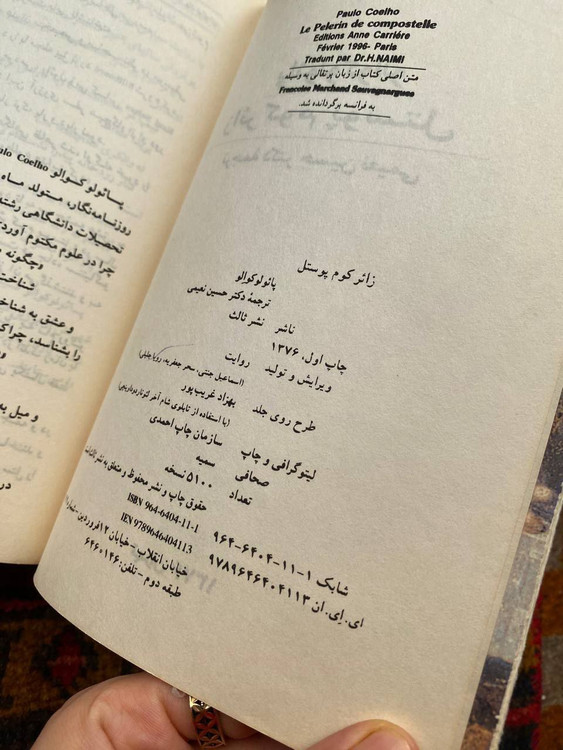 Paulo Coelho
Le Pelerin de compostelle
Editions Anne Carriére
Février 1996- Paris
Tradunt par Dr.H.NAIMI
متن اصلی کتاب از زبان پرتقالی به وسیله
Francoise Marchand Sauvagnargues
به فرانسه برگردانده شد.
زائر کوم پوستل
پائولوکوالو
ترجمهٔ دکتر حسین نعیمی
ناشر نشر ثالث
چاپ اول، ۱۳۷۶
ویرایش و تولید روایت
(اسماعیل جنتی، سحر جعفریه، رویا جلیلی)
طرح روی جلد بهزاد غریب‌پور
(با استفاده از تابلوی شام آخر لئوناردوداوینچی)
لیتوگرافی و چاپ سازمان چاپ احمدی
صحافی سمیه
تعداد ۵۱۰۰ نسخه
حقوق چاپ و نشر محفوظ و متعلق به نشر ثالث است
شابک ۱-۱۱-۶۴۰۴-۹۶۴ ISBN 964-6404-11-1
ای. ای. ان ۹۷۸۹۶۴۶۴۰۴۱۱۳ IEN 9789646404113
خیابان انقلاب - خیابان ۱۲ فروردین -
طبقه دوم - تلفن: ۶۴۶۰۱۴۶
پائولو کوالو Paulo Coelho
روزنامه‌نگار، متولد ماه
تحصیلات دانشگاهی رشته
چرا در علوم مکتوم آورد
وچگونه
شناخت
و عشق به شناخ
را بشناسد، چرا که
و میل به
در